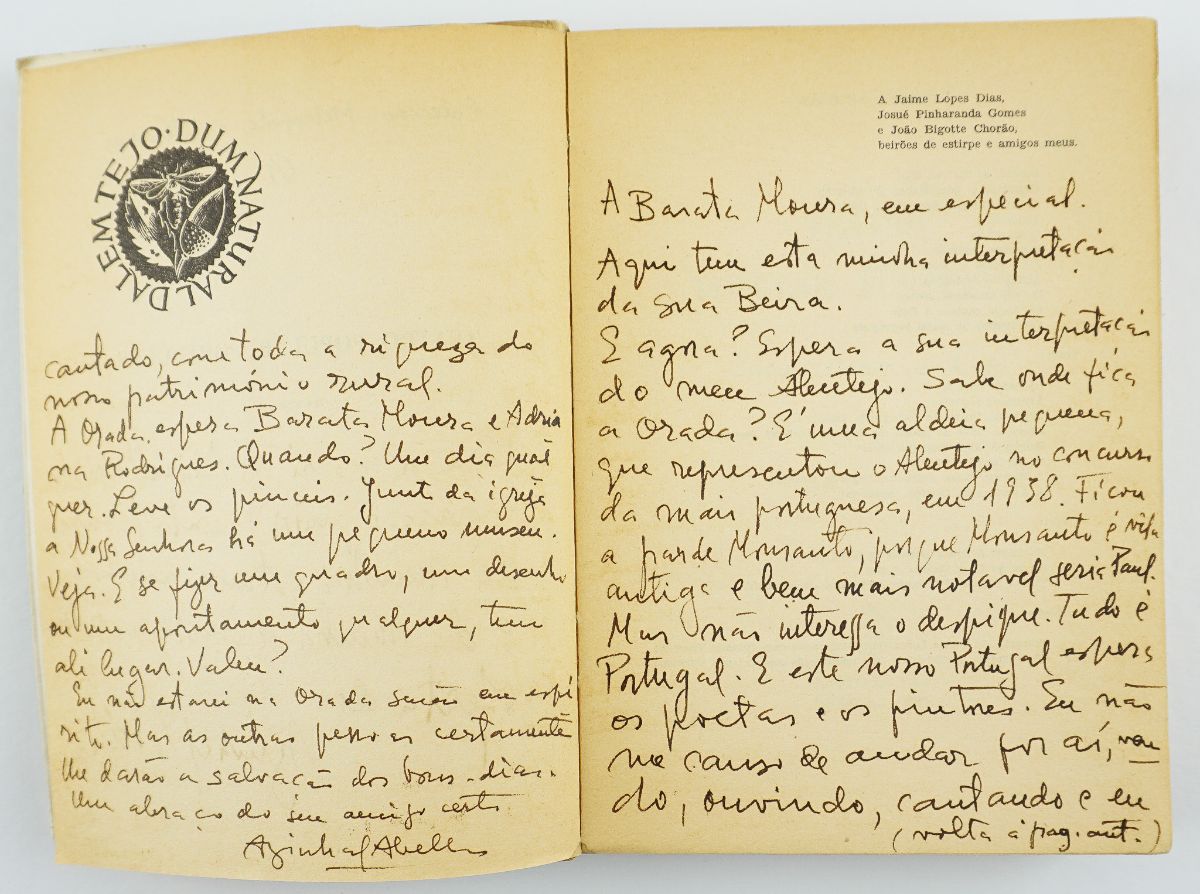 DUM NATURAL DALEM TEJO ·
A Jaime Lopes Dias,
Josué Pinharanda Gomes
e João Bigotte Chorão,
beirões de estirpe e amigos meus.
A Barata Moura, em especial.
Aqui tem esta minha interpretação
da sua Beira.
E agora? Espera a sua interpretação
do meu Alentejo. Sabe onde fica
a Orada? É uma aldeia pequena,
que representou o Alentejo no concurso
da mais portuguesa, em 1938. Ficou
a par de Monsanto, porque Monsanto é vila
antiga e bem mais notavel seria
Mas não interessa o despique. Tudo é
Portugal. E este nosso Portugal espera
os poetas e os pintores. Eu não
me canso de andar por aí, ven
do, ouvindo, cantando e en
(volta à pag. ant.)
cantado, com toda a riqueza do
nosso património rural.
A Orada espera Barata Moura e Adria
na Rodrigues. Quando? Um dia qual
quer. Leve os pinceis. Junto da igreja
a Nossa Senhora há um pequeno museu.
Veja. E se fizer um quadro, um desenho
ou um apontamento qualquer, tem
ali lugar. Valeu?
Eu não estarei na Orada senão em espí
rito. Mas as outras pessoas certamente
lhe darão a salvação dos bons-dias.
Um abraço do seu amigo certo
Azinhal Abelho